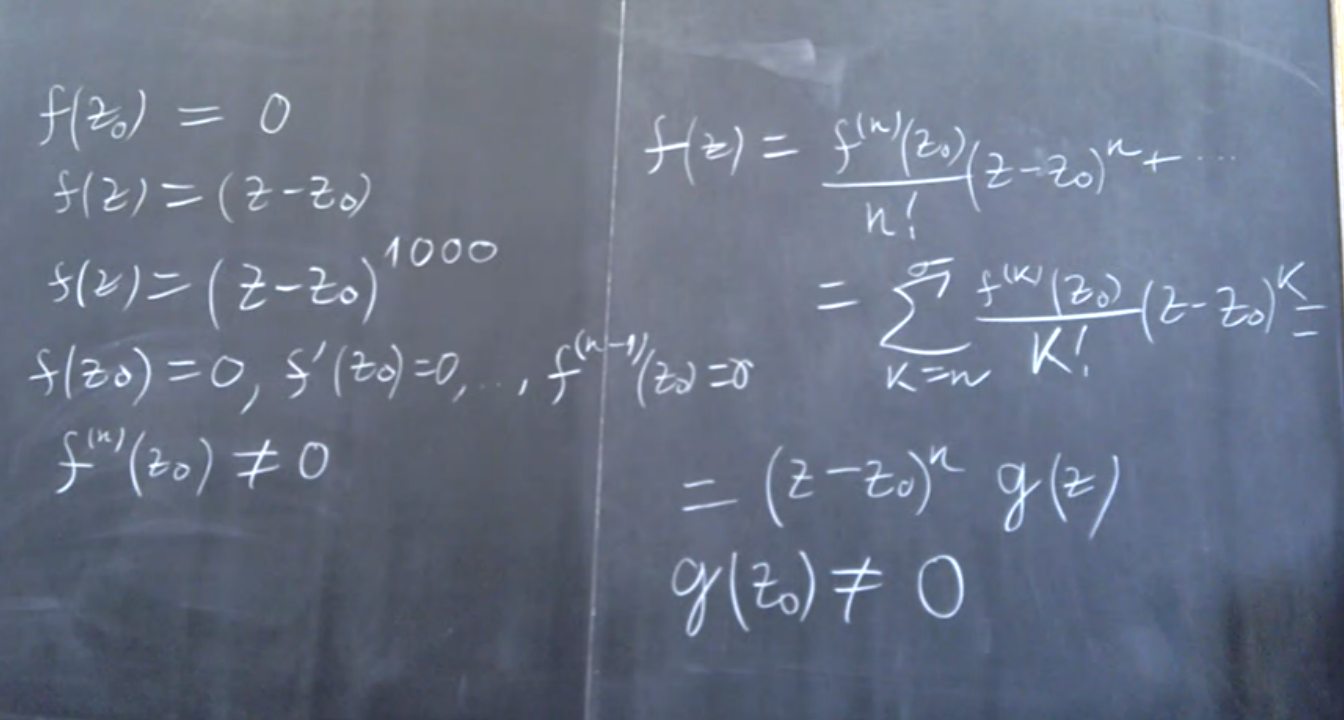 f(z₀) = 0
f(z) = (z-z₀)
f(z) = (z-z₀)¹⁰⁰⁰
f(z₀) = 0, f'(z₀)=0, ..., f⁽ⁿ⁻¹⁾(z₀)=0
f⁽ⁿ⁾(z₀) ≠ 0
f(z) = f⁽ⁿ⁾(z₀)/n! (z-z₀)ⁿ + ...
= ∑_{k=n}^{∞} f⁽ᵏ⁾(z₀)/k! (z-z₀)ᵏ =
= (z-z₀)ⁿ g(z)
g(z₀) ≠ 0